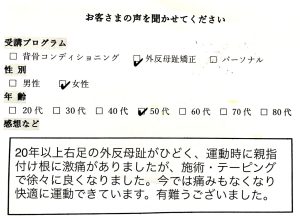 お客さまの声を聞かせてください
受講プログラム
□ 背骨コンディショニング ☑ 外反母趾矯正 □ パーソナル
性 別
□ 男性 ☑ 女性
年 齢
□ 20代 □ 30代 □ 40代 ☑ 50代 □ 60代 □ 70代 □ 80代
感想など
20年以上右足の外反母趾がひどく、運動時に親指
付け根に激痛がありましたが、施術・テーピング
で徐々に良くなりました。今では痛みもなくなり
快適に運動できています。有難うございました。